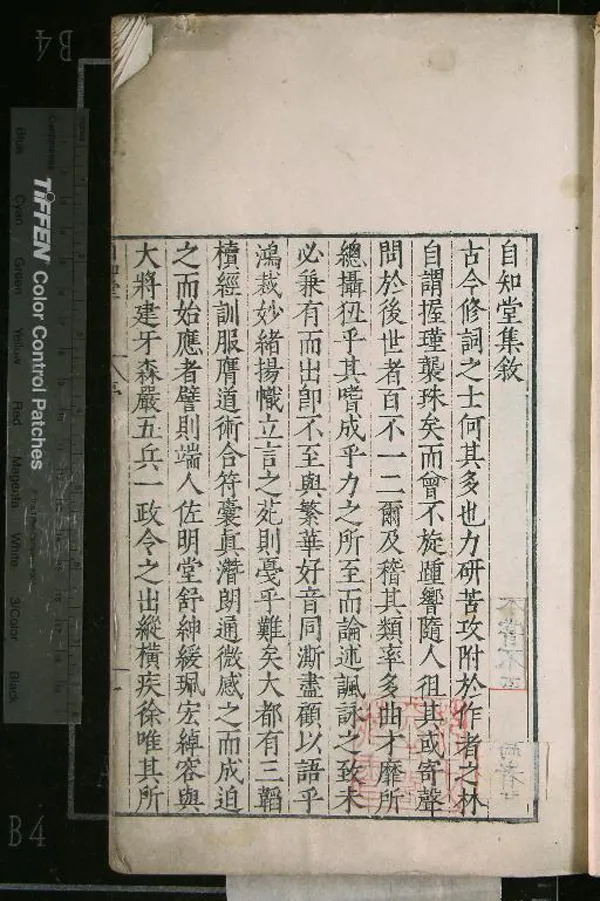 自知堂集敘
古今修詞之士何其多也力研苦攻附於作者之林
自謂握瑾襲珠矣而曾不旋踵響隨人徂其或寄聲
問於後世者百不一二爾及稽其類率多曲才靡所
總攝狃乎其嗜成乎力之所至而論述諷詠之致未
必兼有而出卽不至與繁華好音同澌盡顧以語乎
鴻裁妙緒揚幟立言之苑則戞乎難矣大都有三韜
櫝經訓服膺道術合符囊眞濳朗通微感之而成迫
之而始應者譬則端人佐明堂舒紳緩珮宏綽容與
大將建牙森嚴五兵一政令之出縱橫疾徐唯其所
TIFFEN Color Control Patches
Blue
Cyan
Green
Yellow
Red
Magenta
White
3/Color
Black
B4
B4